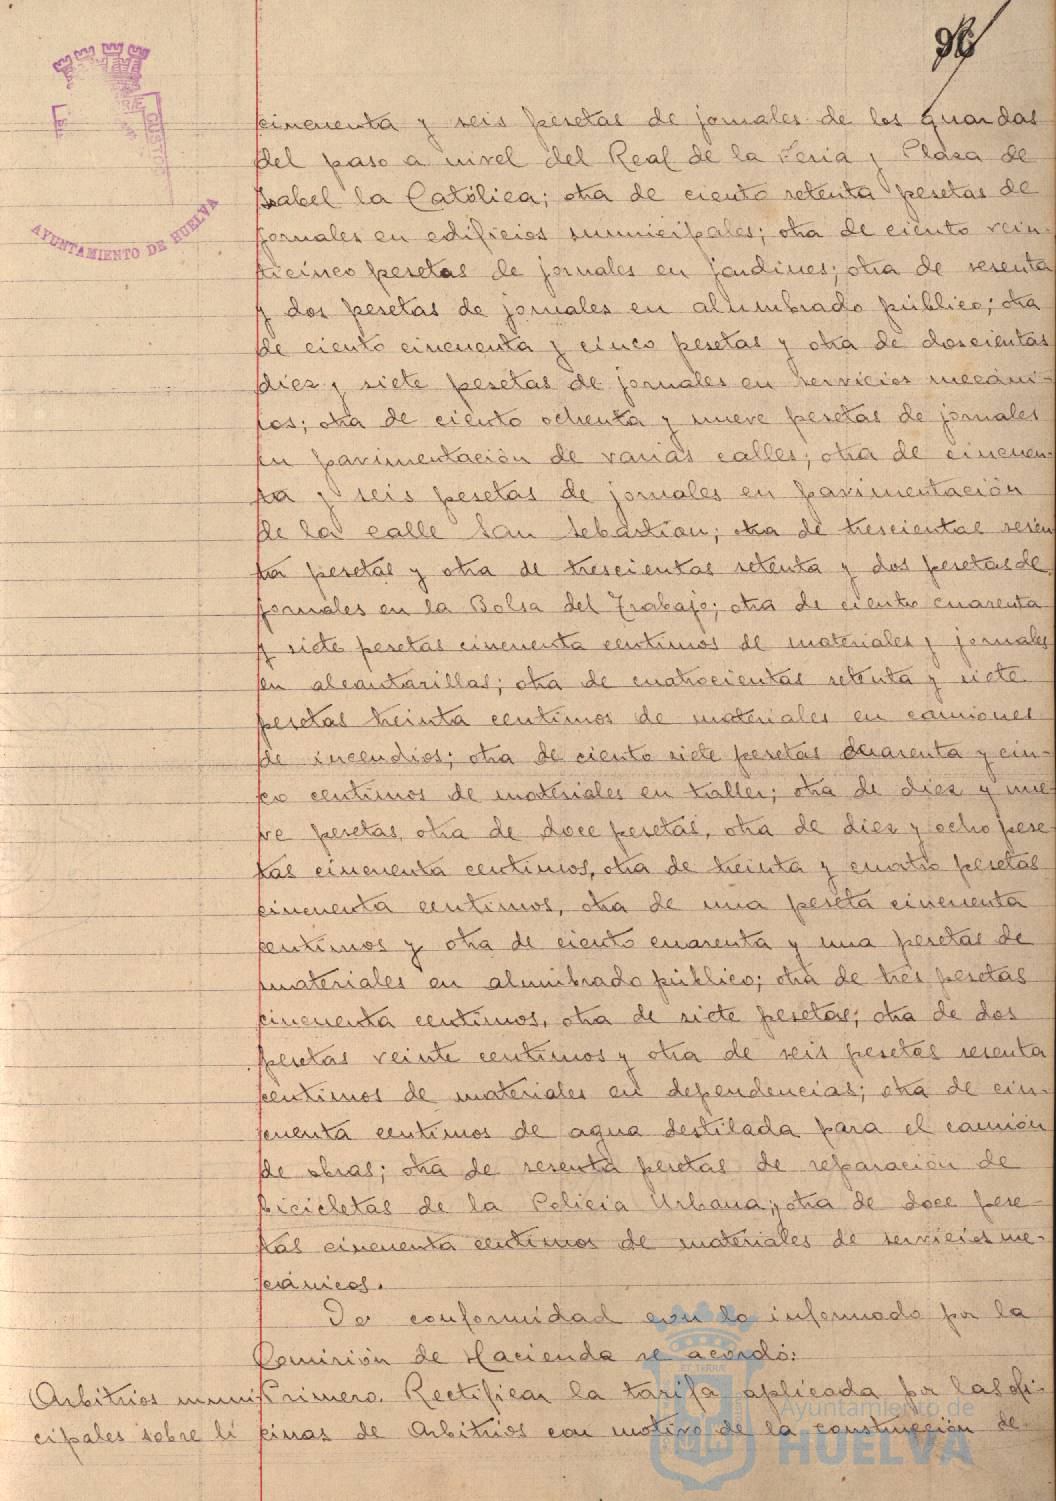 96
cincuenta y seis pesetas de jornales de los guardas
del paso a nivel del Real de la Feria y Plaza de
Isabel la Católica; otra de ciento setenta pesetas de
jornales en edificios municipales; otra de ciento vein-
ticinco pesetas de jornales en jardines; otra de sesenta
y dos pesetas de jornales en alumbrado público; otra
de ciento cincuenta y cinco pesetas y otra de doscientas
diez y siete pesetas de jornales en servicios mecáni-
cos; otra de ciento ochenta y nueve pesetas de jornales
en pavimentación de varias calles; otra de cincuen-
ta y seis pesetas de jornales en pavimentación
de la calle San Sebastian; otra de trescientas sesen-
ta pesetas y otra de trescientas setenta y dos pesetas de
jornales en la Bolsa del Trabajo; otra de ciento cuarenta
y siete pesetas cincuenta centimos de materiales y jornales
en alcantarillas; otra de cuatrocientas setenta y siete
pesetas treinta centimos de materiales en camiones
de incendios; otra de ciento siete pesetas cuarenta y cin-
co centimos de materiales en taller; otra de diez y nue-
ve pesetas, otra de doce pesetas, otra de diez y ocho pese-
tas cincuenta centimos, otra de treinta y cuatro pesetas
cincuenta centimos, otra de una peseta cincuenta
centimos y otra de ciento cuarenta y una pesetas de
materiales en alumbrado público; otra de tres pesetas
cincuenta centimos, otra de siete pesetas; otra de dos
pesetas veinte centimos y otra de seis pesetas sesenta
centimos de materiales en dependencias; otra de cin-
cuenta centimos de agua destilada para el camión
de obras; otra de sesenta pesetas de reparacion de
bicicletas de la Policia Urbana; y otra de doce pese-
tas cincuenta centimos de materiales de servicios me-
cánicos.
De conformidad con lo informado por la
Comisión de Hacienda se acordó:
Arbitrios muni-
cipales sobre li
Primero. Rectificar la tarifa aplicada por las ofi-
cinas de Arbitrios con motivo de la construcción de
AYUNTAMIENTO DE HUELVA
CUSTOS
Ayuntamiento de
HUELVA